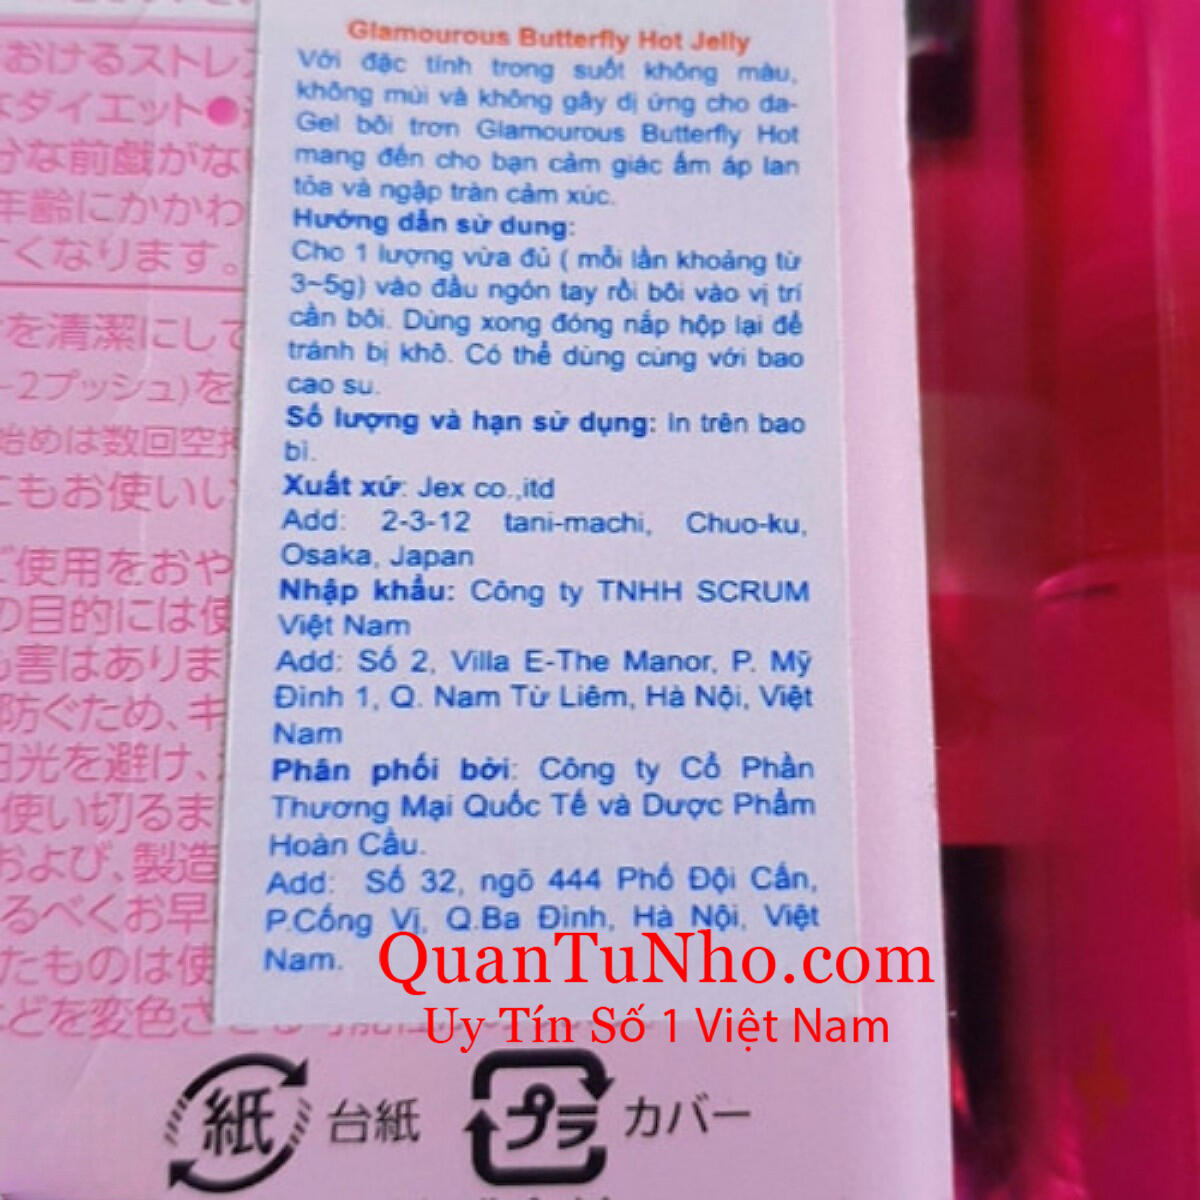 Glamourous Butterfly Hot Jelly
Với đặc tính trong suốt không màu,
không mùi và không gây dị ứng cho da-
Gel bôi trơn Glamourous Butterfly Hot
mang đến cho bạn cảm giác ấm áp lan
tỏa và ngập tràn cảm xúc.
Hướng dẫn sử dung:
Cho 1 lượng vừa đủ ( mỗi lần khoảng từ
3~5g) vào đầu ngón tay rồi bôi vào vị trí
cần bôi. Dùng xong đóng nắp hộp lại để
tránh bị khô. Có thể dùng cùng với bao
cao su.
Số lượng và hạn sử dụng: In trên bao
bì.
Xuất xứ: Jex co.,itd
Add: 2-3-12 tani-machi, Chuo-ku,
Osaka, Japan
Nhập khẩu: Công ty TNHH SCRUM
Việt Nam
Add: Số 2, Villa E-The Manor, P. Mỹ
Đình 1, Q. Nam Từ Liêm, Hà Nội, Việt
Nam
Phân phối bởi: Công ty Cổ Phần
Thương Mại Quốc Tế và Dược Phẩm
Hoàn Cầu.
Add: Số 32, ngõ 444 Phố Đội Cấn,
P.Cống Vị, Q.Ba Đình, Hà Nội, Việt
Nam.
QuanTuNho.com
Uy Tín Số 1 Việt Nam
おけるストレス
なダイエット●
分な前戯がな
年齢にかかわ
すくなります。
を清潔にして
-2プッシュ)を
始めは数回空押
にもお使いい
ご使用をおや
の目的には使
も害はありま
防ぐため、キ
日光を避け、
使い切るま
および、製造
るべくお早
たものは使
などを変色さ
紙 台紙
プラ カバー